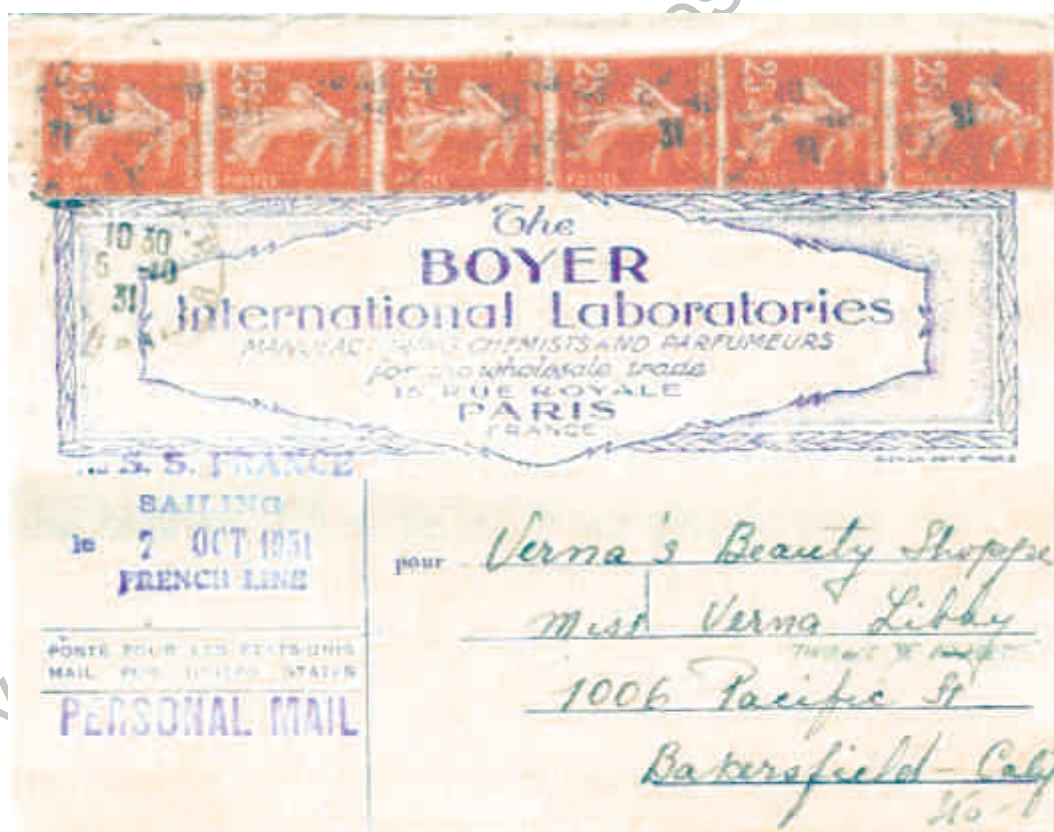 25 25 25 25 25 25
POSTES POSTES POSTES POSTES POSTES
31 31 31
The
BOYER
International Laboratories
MANUFACTURING CHEMISTS AND PARFUMEURS
for the wholesale trade
15 RUE ROYALE
PARIS
FRANCE
10 30
5 -10
31
S. S. FRANCE
SAILING
le 7 OCT 1931
FRENCH LINE
POSTE POUR LES ETATS-UNIS
MAIL FOR UNITED STATES
PERSONAL MAIL
pour Verna's Beauty Shoppe
Miss Verna Libby
1006 Pacific St
Bakersfield - Calif